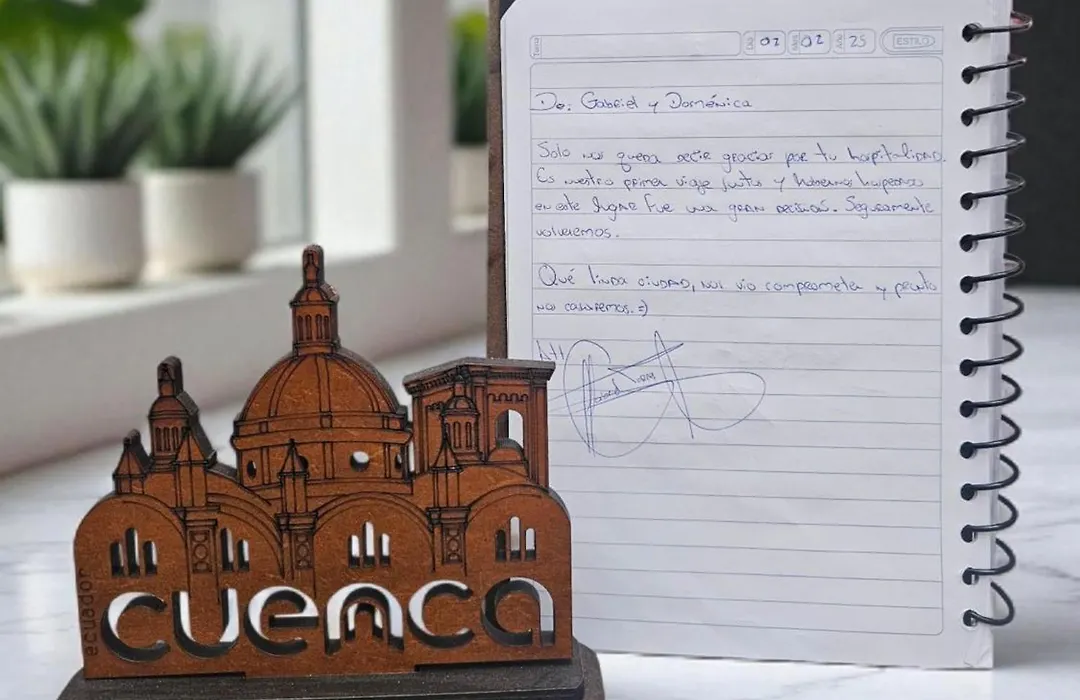 Tema:
DÍA: 02 MES: 02 AÑO: 25 ESTILO
De: Gabriel y Doménica
Solo nos queda decir gracias por tu hospitalidad.
Es nuestro primer viaje juntos y habernos hospedado
en este lugar fue una gran decisión. Seguramente
volveremos.
Qué linda ciudad, nos vio comprometer y pronto
nos casaremos. =)
Att
ecuador
cuenca